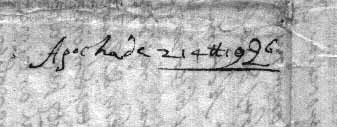 Apocha de 214 ₶ 19 ß 6